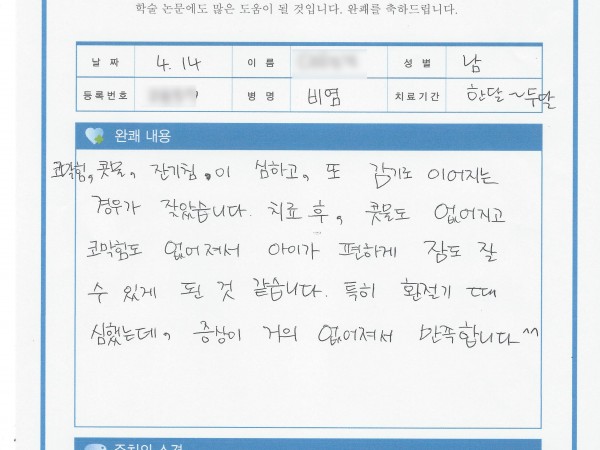 학술 논문에도 많은 도움이 될 것입니다. 완쾌를 축하드립니다.
날 짜 4.14 이 름 성 별 남
등록번호 병 명 비염 치료기간 한달~두달
완쾌 내용
코막힘, 콧물, 잔기침, 이 심하고, 또 감기로 이어지는
경우가 잦았습니다. 치료 후, 콧물도 없어지고
코막힘도 없어져서 아이가 편하게 잠도 잘
수 있게 된 것 같습니다. 특히 환절기 때
심했는데, 증상이 거의 없어져서 만족합니다^^